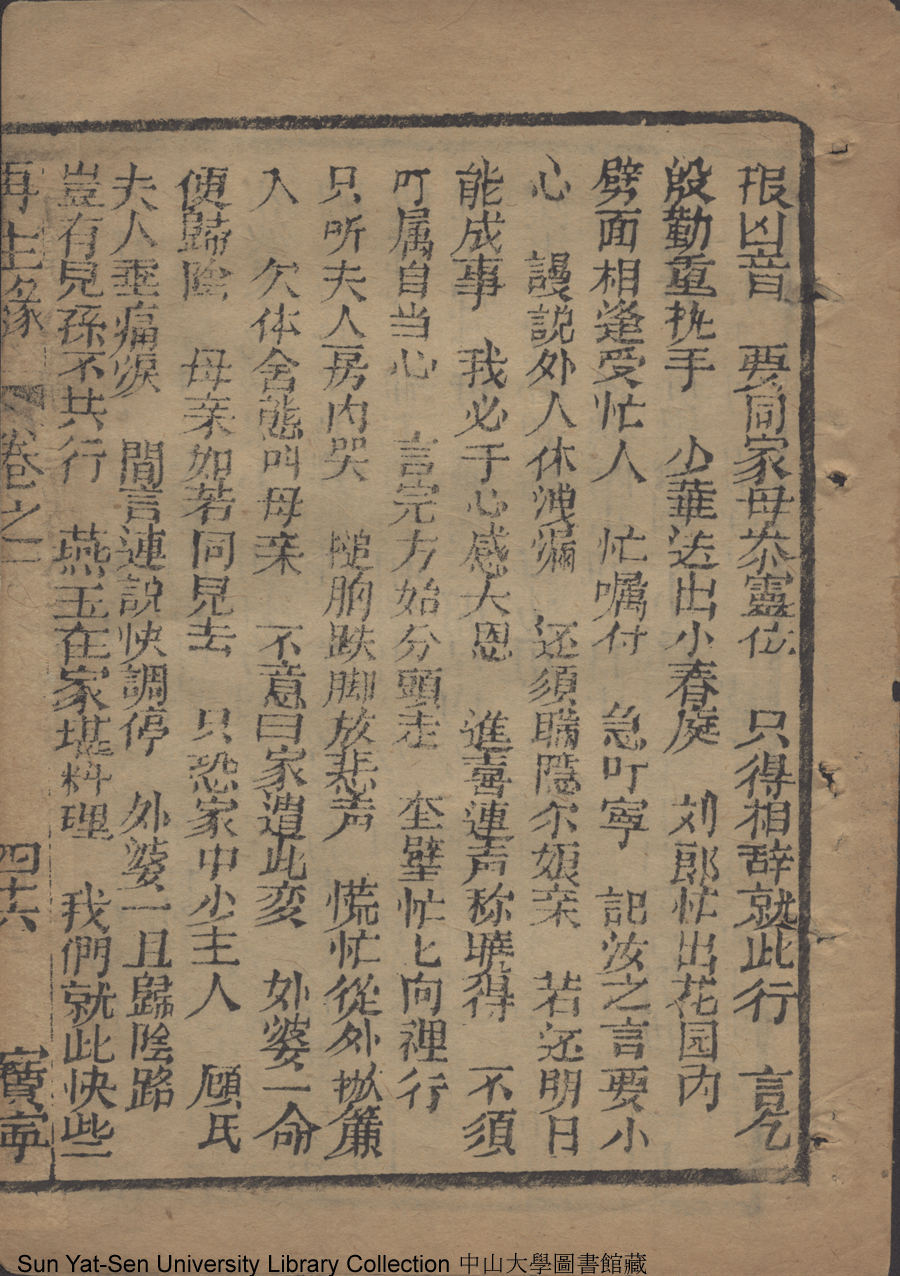 报凶音　要同家母恭靈位　只得相辞就此行　言乞
殷勤重执手　少華送出小春庭　刘郎忙出花园内
劈面相逢受忙人　忙嘱付　急叮寧　記汝之言要小
心　謾説外人休洩漏　还须瞒隠尔娘亲　若还明日
能成事　我必于心感大恩　進喜連声称曉得　不須
叮属自当心　言完方始分頭走　奎璧忙匕向裡行
只听夫人房内哭　搥胸跌脚放悲声　慌忙從外掀簾
入　欠体含態叫母亲　不意曰家遭此变　外婆一命
便歸陰　母亲如若同見去　只恐家中少主人　顧氏
夫人垂痛淚　間言連説快調停　外婆一旦歸陰路
豈有兒孫不共行　燕玉在家堪料理　我們就此快些
再生缘　卷之一　四十六　寶寧
Sun Yat-Sen University Library Collection 中山大學圖書館藏